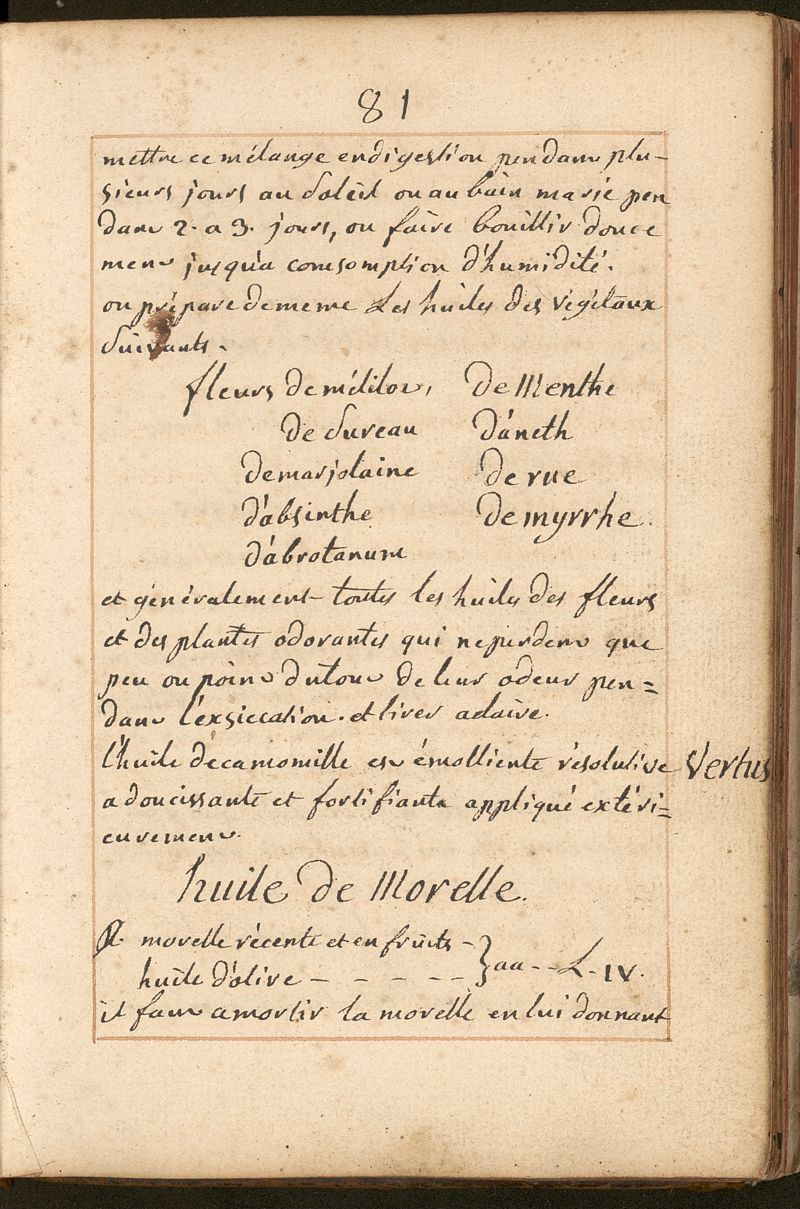 81
mettre ce mélange en digestion pendant plu-
sieurs jours au Soleil ou au bain marie pen
dant 2. a 3. jours, ou faire bouillir douce
ment jusqu'a comsomption d'humidité.
on prépare de meme Les huiles des végétaux
Suivants.
fleurs de mélilot, de Menthe
de Sureau d'áneth
de marjolaine de rue
d'absinthe de myrrhe.
d'abrotanum
et généralement toutes les huiles des fleurs
et des plantes odorantes qui ne perdent que
peu ou point dutout de leur odeur pen=
dant l'exsiccation. et tirer aclaire.
l'huile décamomille est émolliente résolutive Vertus
adoucissante et fortifiante appliqué extéri=
eurement.
huile de Morelle.
♃. morelle récente et en fruits - } aa - - L. IV.
huile d'olive - - - - -
il faut amortir la morelle en lui donnant